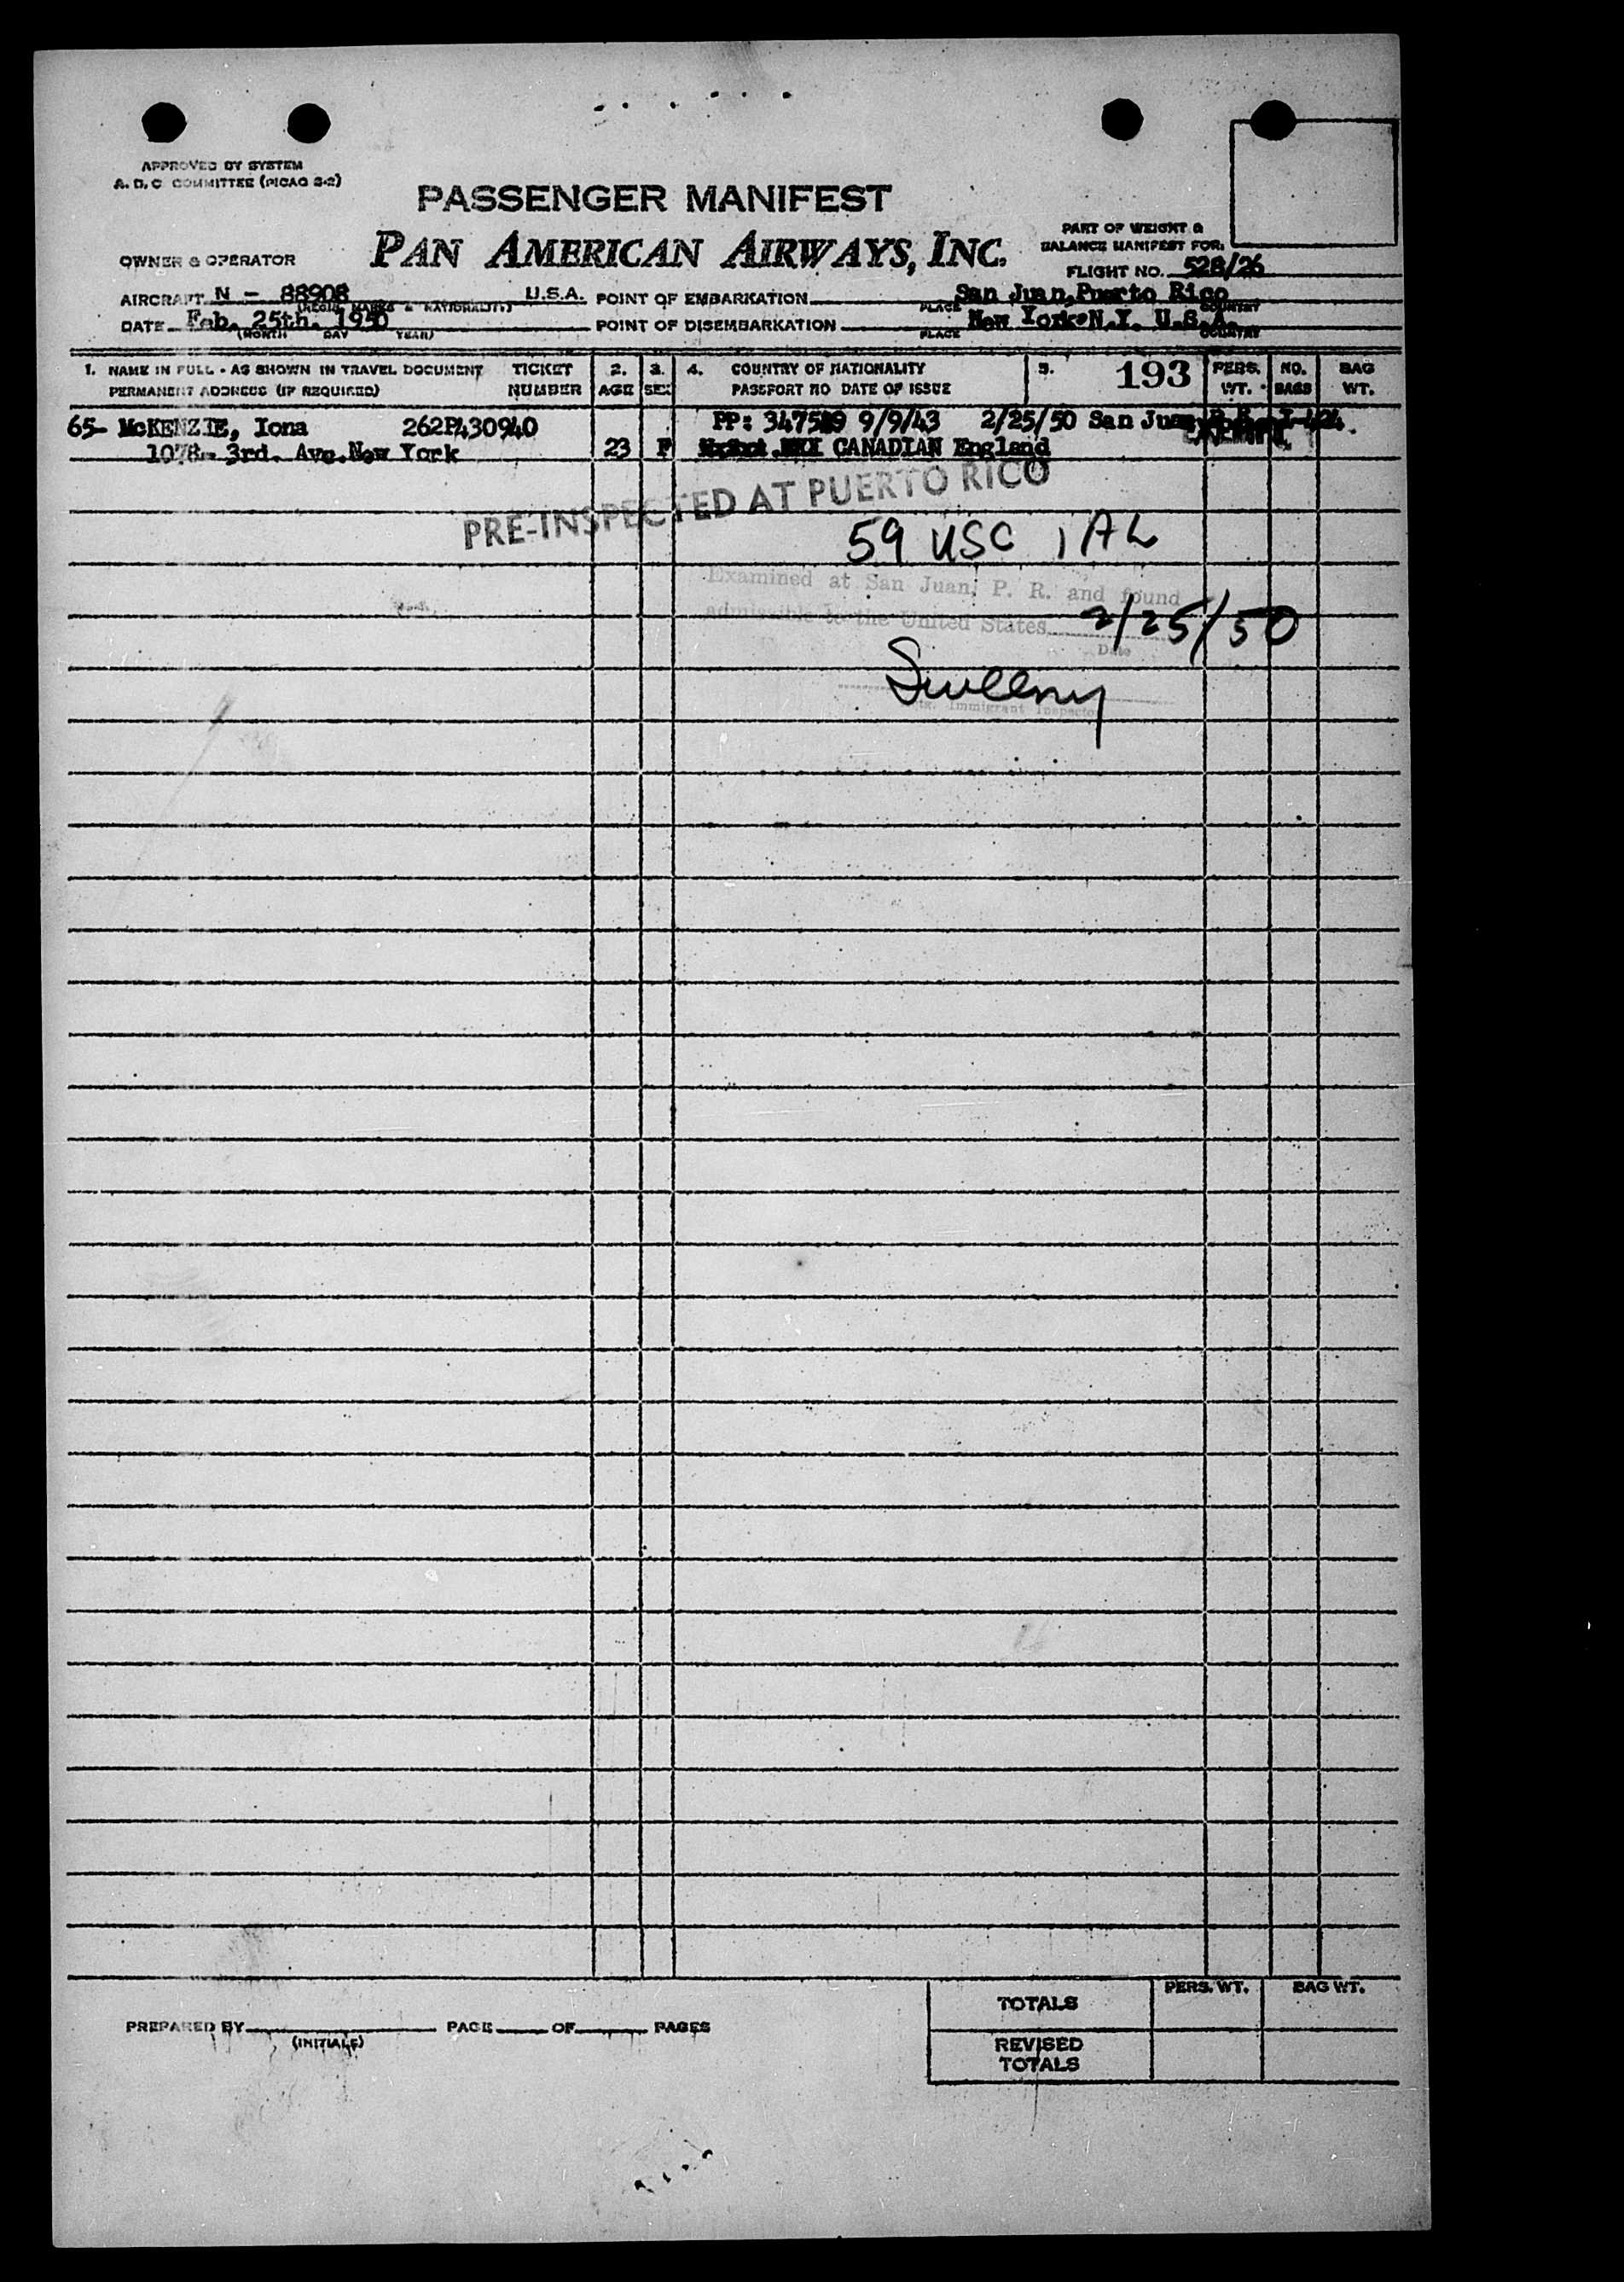 APPROVED BY SYSTEM
A. D. C. COMMITTEE (PICAO S-2)
PASSENGER MANIFEST
PAN AMERICAN AIRWAYS, INC.
PART OF WEIGHT &
BALANCE MANIFEST FOR:
OWNER & OPERATOR
FLIGHT NO. 528/26
AIRCRAFT N - 88908 U.S.A. POINT OF EMBARKATION San Juan, Puerto Rico
(REGIS. MARKS & NATIONALITY) PLACE COUNTRY
DATE Feb. 25th. 1950 POINT OF DISEMBARKATION New York N.Y. U.S.A.
(MONTH DAY YEAR) PLACE COUNTRY
1. NAME IN FULL - AS SHOWN IN TRAVEL DOCUMENT TICKET 2. 3. 4. COUNTRY OF NATIONALITY 5. 193 PERS. NO. BAG
PERMANENT ADDRESS (IF REQUIRED) NUMBER AGE SEX PASSPORT NO DATE OF ISSUE WT. BAGS WT.
65- McKENZIE, Iona 262P430940 PP: 9/9/43 2/25/50 San Juan
1078- 3rd. Ave. New York 23 F CANADIAN England
PRE-INSPECTED AT PUERTO RICO
59 USC 1 AL
Examined at San Juan, P. R. and found
admissible to the United States 2/25/50
Date
Immigrant Inspector
TOTALS PERS. WT. BAG WT.
PREPARED BY PAGE OF PAGES
(INITIALS)
REVISED
TOTALS